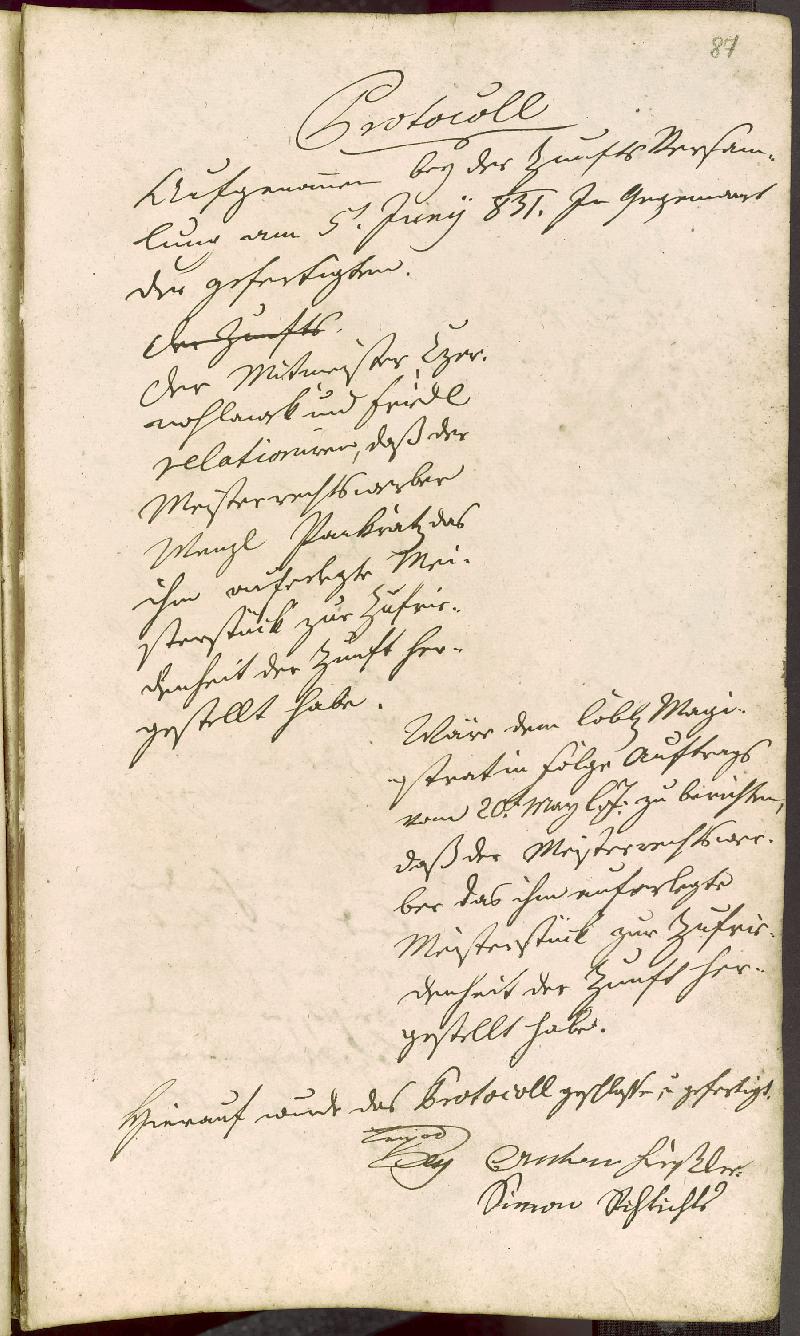 87
Protocoll
Aufgenomen bey der Zunfts Versam-
lung am 5t. Juny 831. In Gegenwart
der gefertigten.
Der Zunfts.
Der Mitmeister Czer-
nohlawek und Friedl
relationiren, daß der
Meisterrechtswerber
Wenzl Pankratz das
ihm auferlegte Mei-
sterstück zur Zufrie-
denheit der Zunft her-
gestellt habe.
Wäre dem löbl Magi-
strat in Folge Auftrags
vom 20t. May zu berichten,
daß der Meisterrechtswer-
ber das ihm auferlegte
Meisterstück zur Zufrie-
denheit der Zunft her-
gestellt habe.
Hierauf wurde das Protocoll geschlossen u gefertigt.
Anton
Simon Schlichts